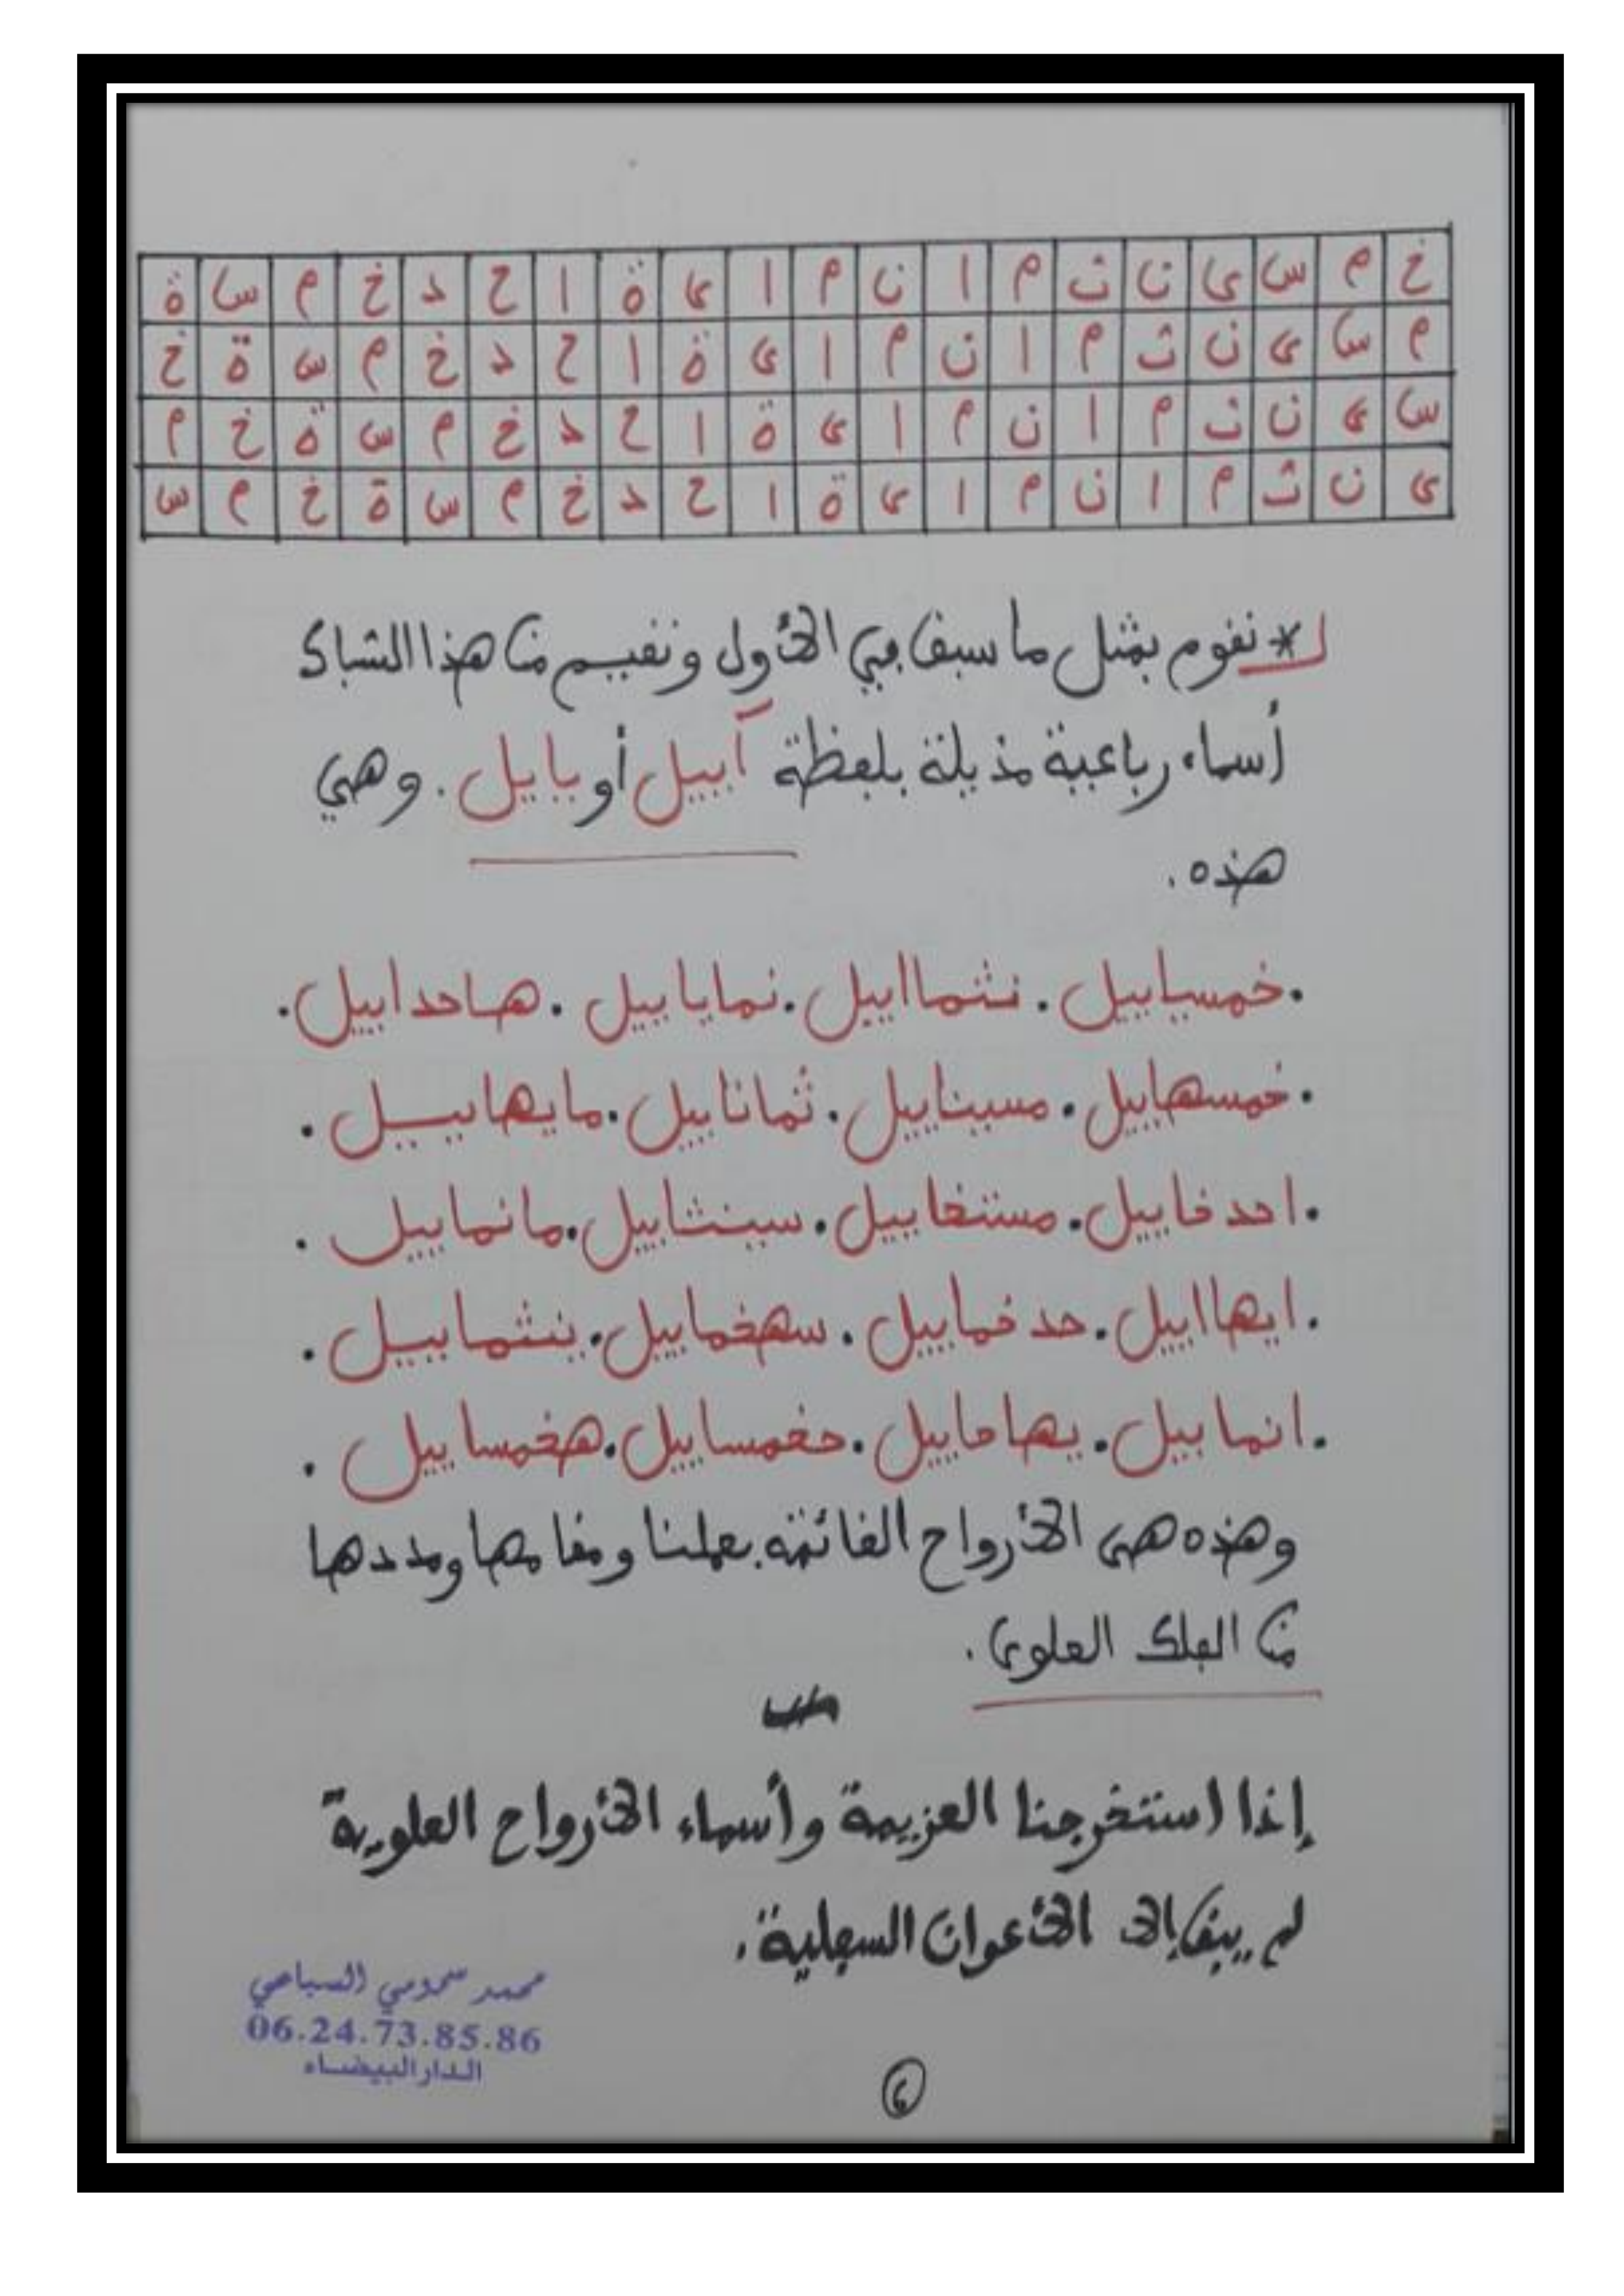 خ م س ى ن ث م ا ن م ا ى ة ا ح د خ م س ة
م س ى ن ث م ا ن م ا ى ة ا ح د خ م س ة خ
س ى ن ث م ا ن م ا ى ة ا ح د خ م س ة خ م
ى ن ث م ا ن م ا ى ة ا ح د خ م س ة خ م س
* نقوم بمثل ما سبق في الأول ونقيم من هذا الشباك
أسماء رباعية مذيلة بلفظة آييل أو يايل . وهي
هذه .
. خمسياييل . نثمااييل . نماياييل . هاحداييل .
. خمسهاييل . مسيناييل . ثماناييل . مايهاييل .
. احدخاييل . مستخاييل . سينثاييل . مانماييل .
. ايهااييل . حدخماييل . سهخماييل . ينثماييل .
. انماييل . يهاحاييل . دخمساييل . هخمساييل .
وهذه هى الأرواح القائمة بعملنا ومقامها ومددها
من الفلك العلوى .
إذا استخرجنا العزيمة وأسماء الأرواح العلوية
لم يبق إلا الأعوان السفلية .
محمد سمومي السباعي
06.24.73.85.86
الدار البيضاء
6